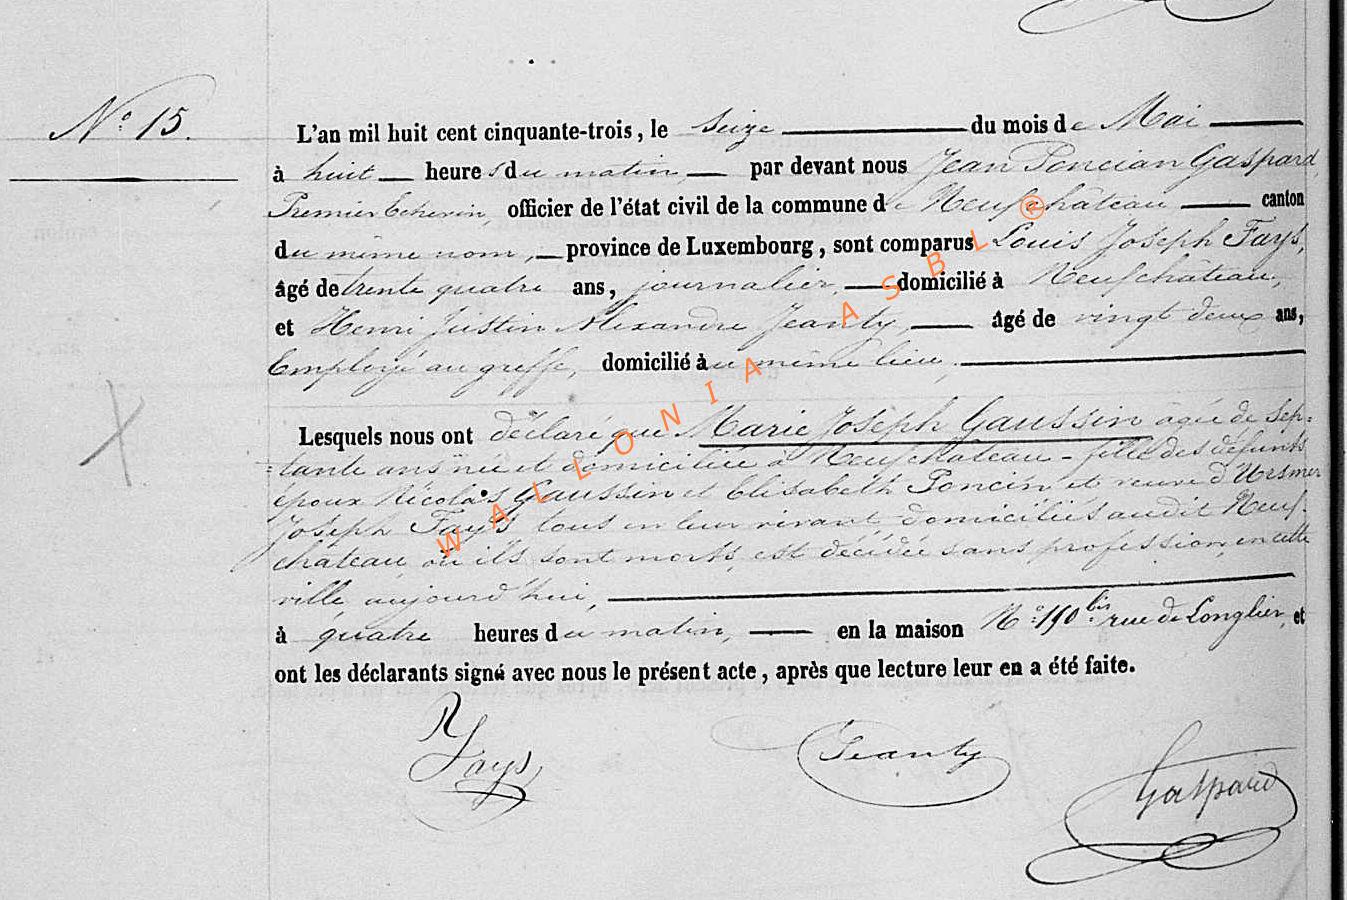 N° 15.
L'an mil huit cent cinquante-trois, le Seize du mois de Mai
à huit heures du matin, par devant nous Jean Poncian Gaspard,
Premier Echevin, officier de l'état civil de la commune de Neufchâteau canton
du même nom, province de Luxembourg, sont comparus Louis Joseph Fays,
âgé de trente quatre ans, journalier, domicilié à Neufchâteau,
et Henri Justin Alexandre Jeanty, âgé de vingt deux ans,
Employé au greffe, domicilié au même lieu,
Lesquels nous ont déclaré que Marie Joseph Gaussin agée de Sep=
=tante ans née et domiciliée à Neufchâteau - fille des défunts
époux Nicolas Gaussin et Elisabeth Poncin et veuve d'Ursmer
Joseph Fays tous en leur vivant domiciliés audit Neuf-
château, où ils sont morts, est décédée sans profession, en cette
ville, aujourd'hui,
à quatre heures du matin, en la maison N° 190 bis rue de Longlier, et
ont les déclarants signé avec nous le présent acte, après que lecture leur en a été faite.
Fays Jeanty
Gaspard
WALLONIA ASBL ®